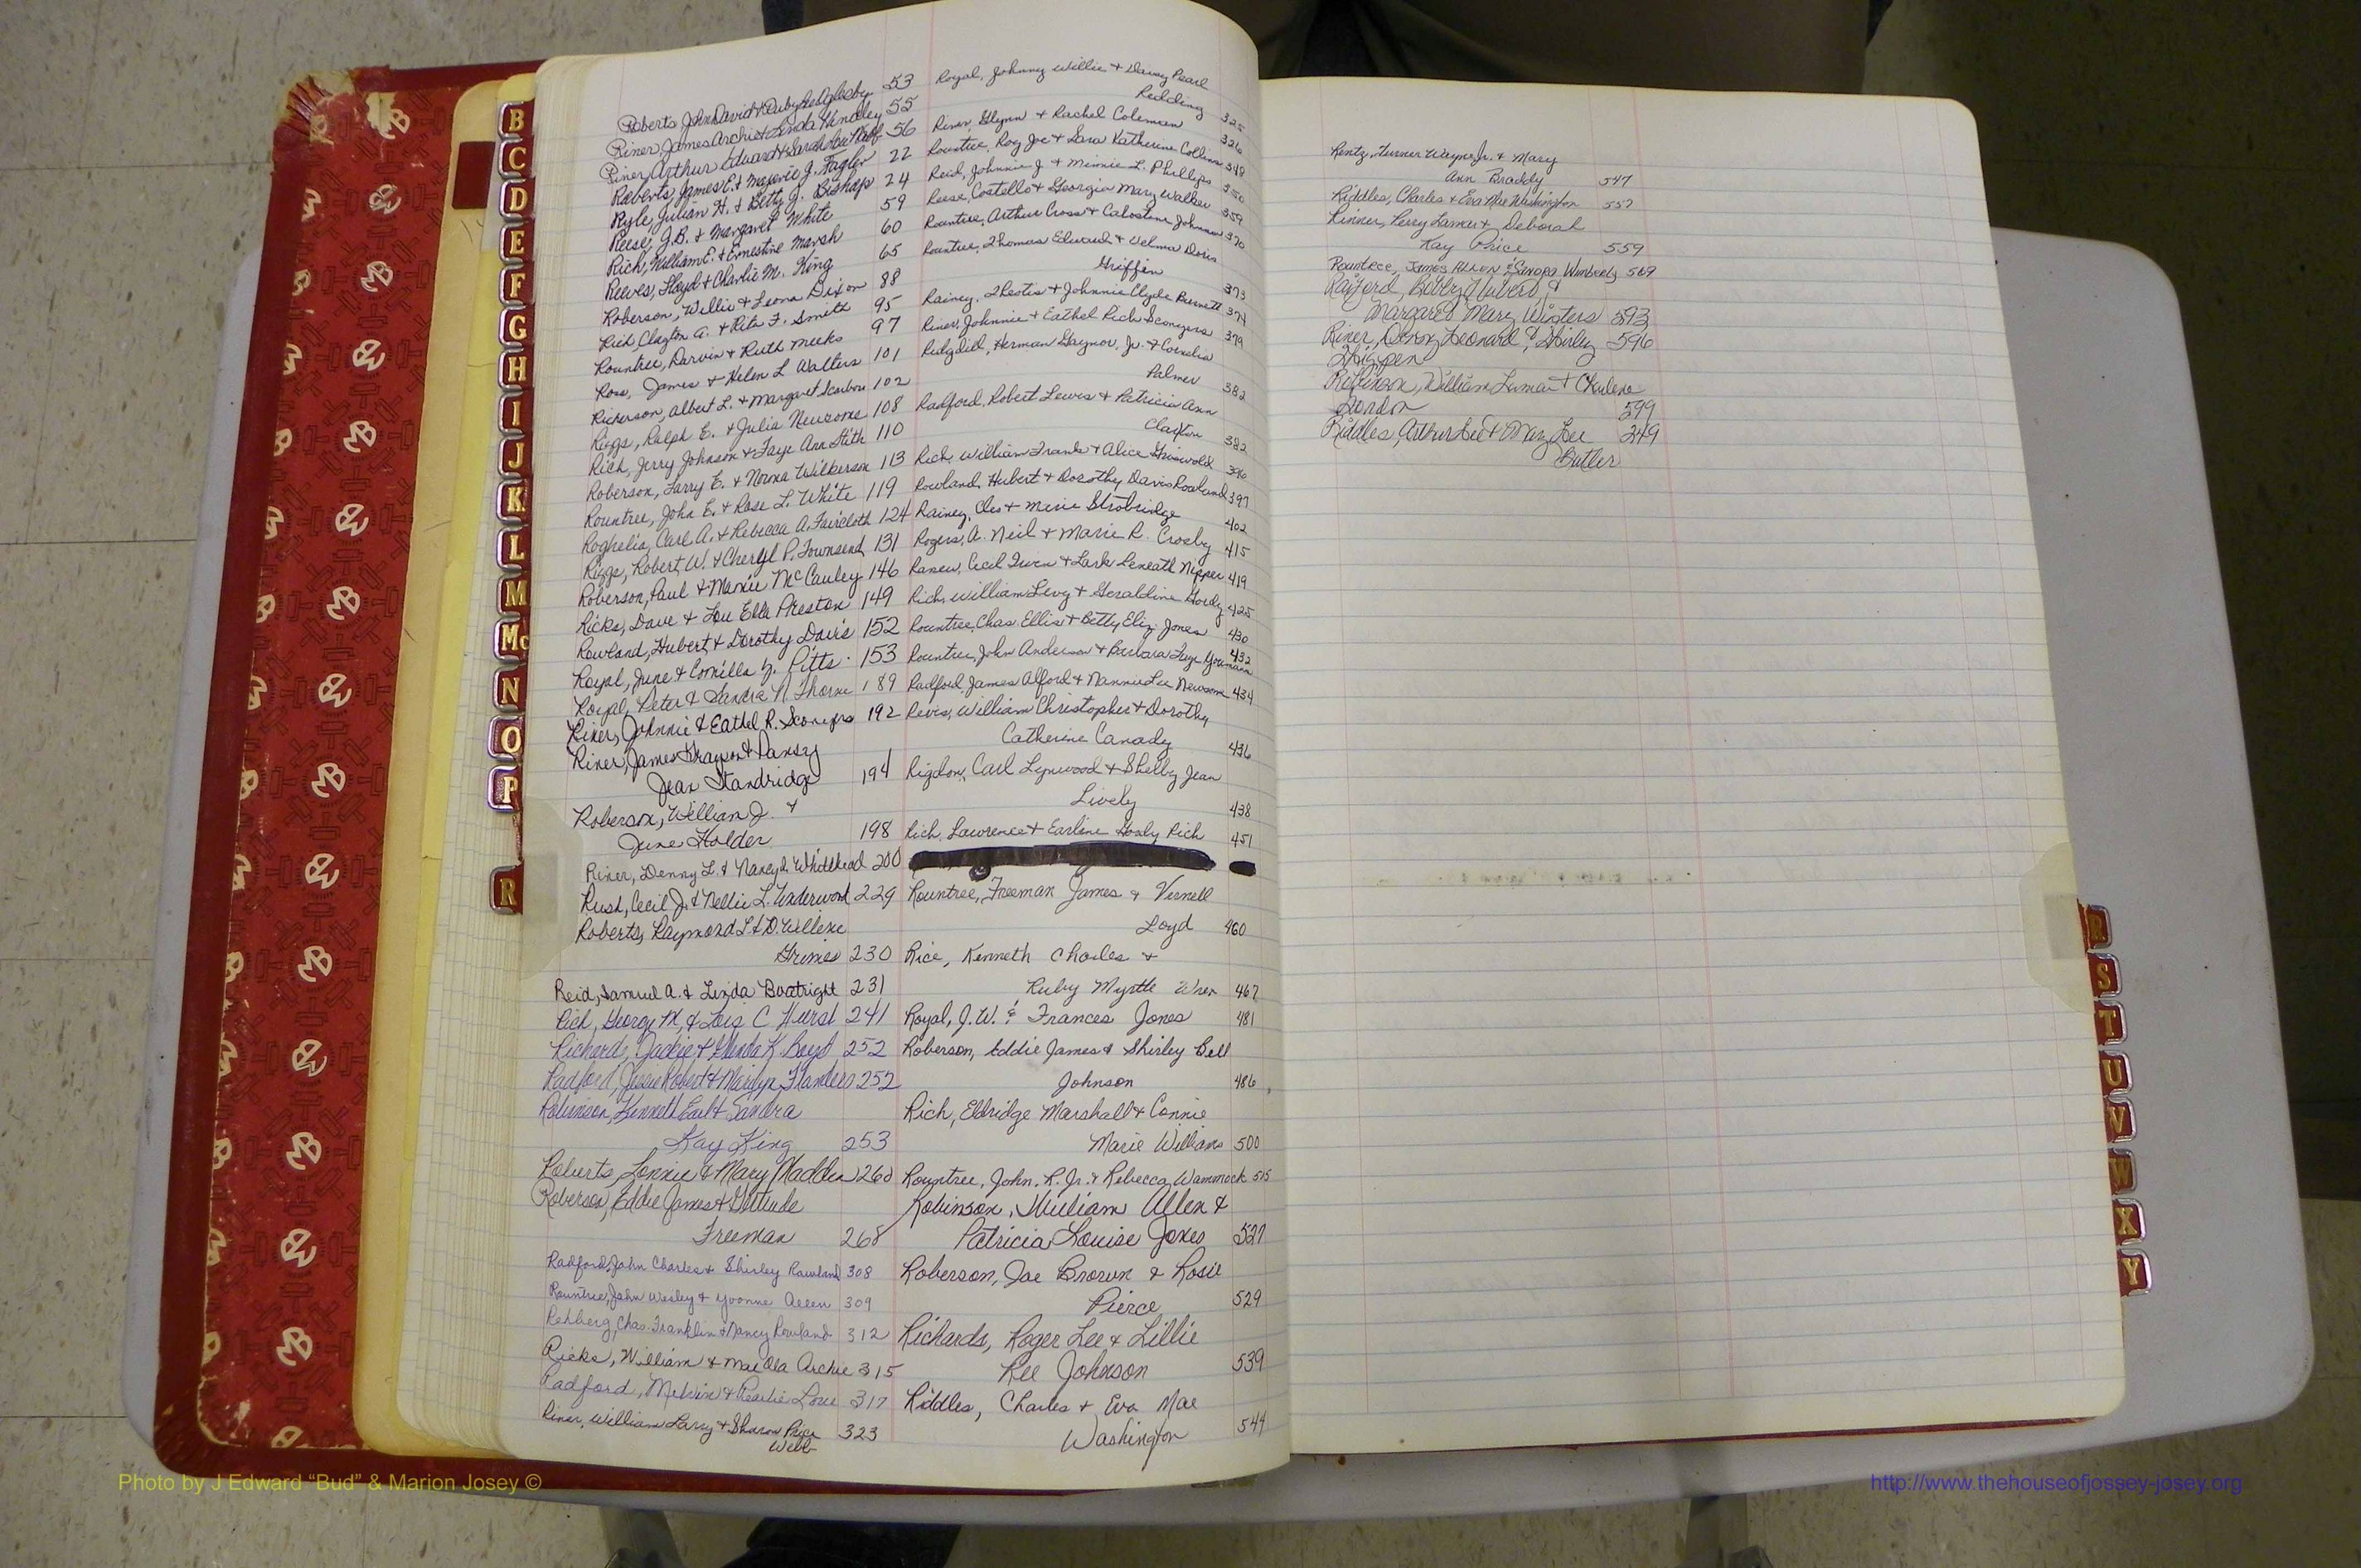 Roberts, John David & Ruby Lee Oglesby 53
Riner, James Archie & Linda Hindley 55
Riner, Arthur Edward & Sarah 56
Roberts, James E. & Marjorie J. Fagler 22
Ryle, Julian H. & Betty J. Bishop 24
Reese, J.B. & Margaret White 59
Rich, William E. & Ernestine Marsh 60
Reeves, Lloyd & Charlie M. King 65
Roberson, Willie & Leona Dixon 88
Rich Clayton A. & Rita F. Smith 95
Rountree, Darvin & Ruth Meeks 97
Ross, James & Helen L Walters 101
Rickerson, Albert L. & Margaret Scarboro 102
Riggs, Ralph E. & Julia Newsome 108
Rich, Jerry Johnson & Faye Ann Stith 110
Roberson, Larry E. & Norma Wilkerson 113
Rountree, John E. & Rose L. White 119
Roghelia, Carl A. & Rebecca A. Faircloth 124
Riggs, Robert W. & Cheryl P. Townsend 131
Roberson, Paul & Mamie McCauley 146
Ricks, Dave & Lou Ella Preston 149
Rowland, Hubert & Dorothy Davis 152
Royal, June & Cornilla Y. Pitts 153
Royal, Peter & Sandra N. Thorne 189
Riner, Johnnie & Eathel R. Sconyers 192
Riner, James Grayson & Pansy
Jean Standridge 194
Roberson, William J. &
June Holder 198
Riner, Denny L. & Nancy Whitehead 200
Rush, Cecil J. & Nellie L. Underwood 229
Roberts, Raymond L & D. Willene
Grimes 230
Reid, Samuel A. & Linda Boatright 231
Rich, George M. & Lois C Hurst 241
Richards, Jackie & Glenda K. Boyd 252
Radford, Jessie Robert & Marilyn Flanders 252
Robinson, Kenneth Earl & Sandra
Kay King 253
Roberts, Lonnie & Mary Madden 260
Roberson, Eddie James & Gertrude
Freeman 268
Radford, John Charles & Shirley Rowland 308
Rountree, John Wesley & Yvonne Allen 309
Rehberg, Chas. Franklin & Nancy Rowland 312
Ricks, William & Mae Ola Archie 315
Radford, Melvin & Pearlie Love 317
Riner, William Larry & Sharon Price
Webb 323
Royal, Johnny Willie & Daisy Pearl
Redding 325
Riner, Glynn & Rachel Coleman 326
Rountree, Roy Joe & Sara Katherine Collins 348
Reid, Johnnie J. & Minnie L. Phillips 350
Reese, Costello & Georgia Mary Walker 359
Rountree, Arthur Cross & Calostine Johnson 370
Rountree, Thomas Edward & Velma Doris
Griffin 373
Rainey, Thestis & Johnnie Clyde Burnett 374
Riner, Johnnie & Eathel Rich Sconyers 379
Ridgdill, Herman Gaynor, Jr. & Cornelia
Palmer 382
Radford, Robert Lewis & Patricia Ann
Claxton 382
Rich, William Frank & Alice Griswold 390
Rowland, Hubert & Dorothy Davis Rowland 397
Rainey, Cleo & Merie Strobridge 402
Rogers, A. Neil & Marie R. Crosby 415
Ranew, Cecil Irven & Lark Leneath Nipper 419
Rich, William Levy & Geraldine Hordy 425
Rountree, Chas. Ellis & Betty Eliz. Jones 430
Rountree, John Anderson & Barbara Faye Youmans 432
Radford, James Alford & Nannie Lee Newsome 434
Reves, William Christopher & Dorothy
Catherine Canady 436
Rigdon, Carl Lynwood & Shelby Jean
Lively 438
Rich, Lawrence & Earline Hooly Rich 451
Rountree, Freeman James & Vernell
Loyd 460
Rice, Kenneth Charles &
Ruby Myrtle Wren 467
Royal, J.W. & Frances Jones 481
Roberson, Eddie James & Shirley Bell
Johnson 486
Rich, Eldridge Marshall & Connie
Marie Williams 500
Rountree, John. R. Jr. & Rebecca Wammock 515
Robinson, William Allen &
Patricia Louise Jones 527
Roberson, Joe Brown & Rosie
Pierce 529
Richards, Roger Lee & Lillie
Lee Johnson 539
Riddles, Charles & Eva Mae
Washington 544
Rentz, Turner Wayne Jr. & Mary
Ann Braddy 547
Riddles, Charles & Eva Mae Washington 557
Rinner, Perry Lamar & Deborah
Kay Price 559
Rountree, James Allen & Wimberly 569
Raiford, Bobby Hubert &
Margaret Mary Winters 593
Riner, Leonard & Shirley 596
Thigpen
Robinson, William Lamar & Charlene
Gordon 599
Riddles, Arthur Lee & Mary Lee 249
Butler
B
C
D
E
F
G
H
I
J
K
L
M
Mc
N
O
P
R
R
S
T
U
V
W
X
Y
Photo by J Edward “Bud” & Marion Josey ©
http://www.thehouseofjossey-josey.org